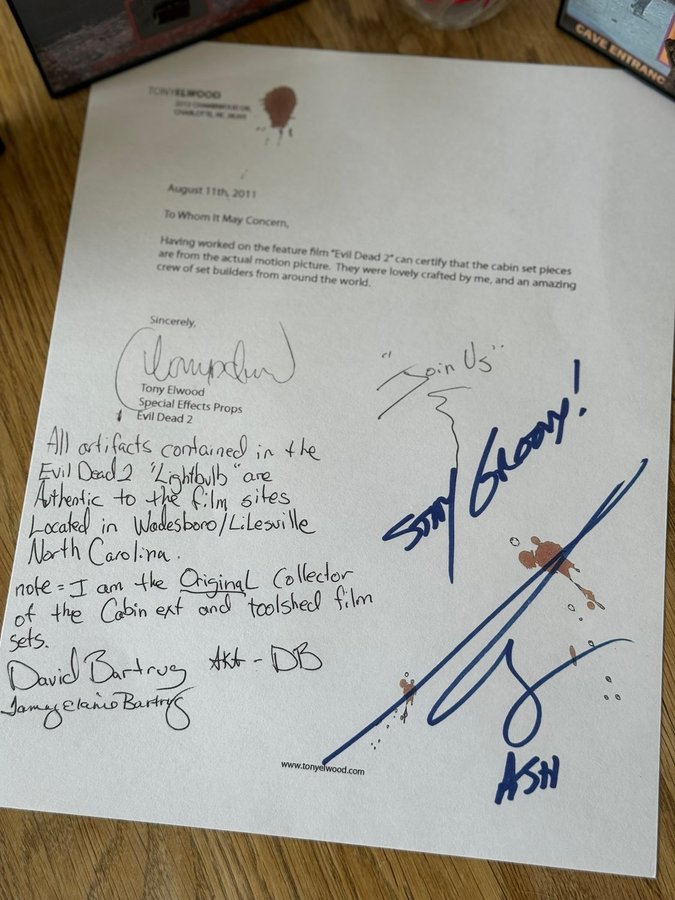 CAVE ENTRANC
TONYELWOOD
CHARLOTTE, NC
August 11th, 2011
To Whom It May Concern,
Having worked on the feature film "Evil Dead 2" can certify that the cabin set pieces
are from the actual motion picture. They were lovely crafted by me, and an amazing
crew of set builders from around the world.
Sincerely,
Tony Elwood
Special Effects Props
Evil Dead 2
"Join Us"
STAY GROOVY!
All artifacts contained in the
Evil Dead 2 "Lightbulb" are
Authentic to the film sites
Located in Wadesboro/Lilesville
North Carolina.
note = I am the Original Collector
of the Cabin ext and toolshed film
sets.
David Bartrug AKA - DB
Tammy Elaine Bartrug
ASH
www.tonyelwood.com